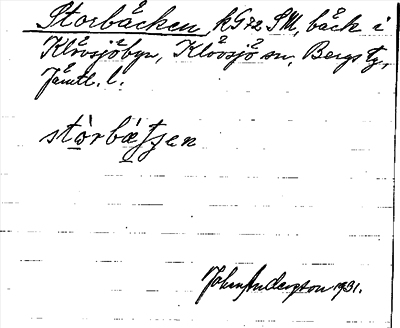 Storbäcken, kG72 SM, bäck i
Klövsjöbyn, Klövsjö sn, Bergs tg,
Jämtl. l.
stòrbætʃen
John Anderzon 1931.